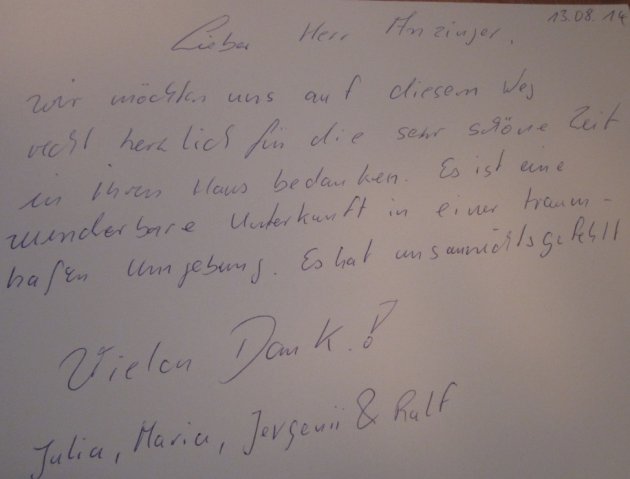 13.08.14
Lieber Herr Anzinger,
wir möchten uns auf diesem Weg
recht herzlich für die sehr schöne Zeit
in Ihrem Haus bedanken. Es ist eine
wunderbare Unterkunft in einer traum-
haften Umgebung. Es hat uns an nichts gefehlt
Vielen Dank!
Julia, Maria, Jevgenii & Ralf